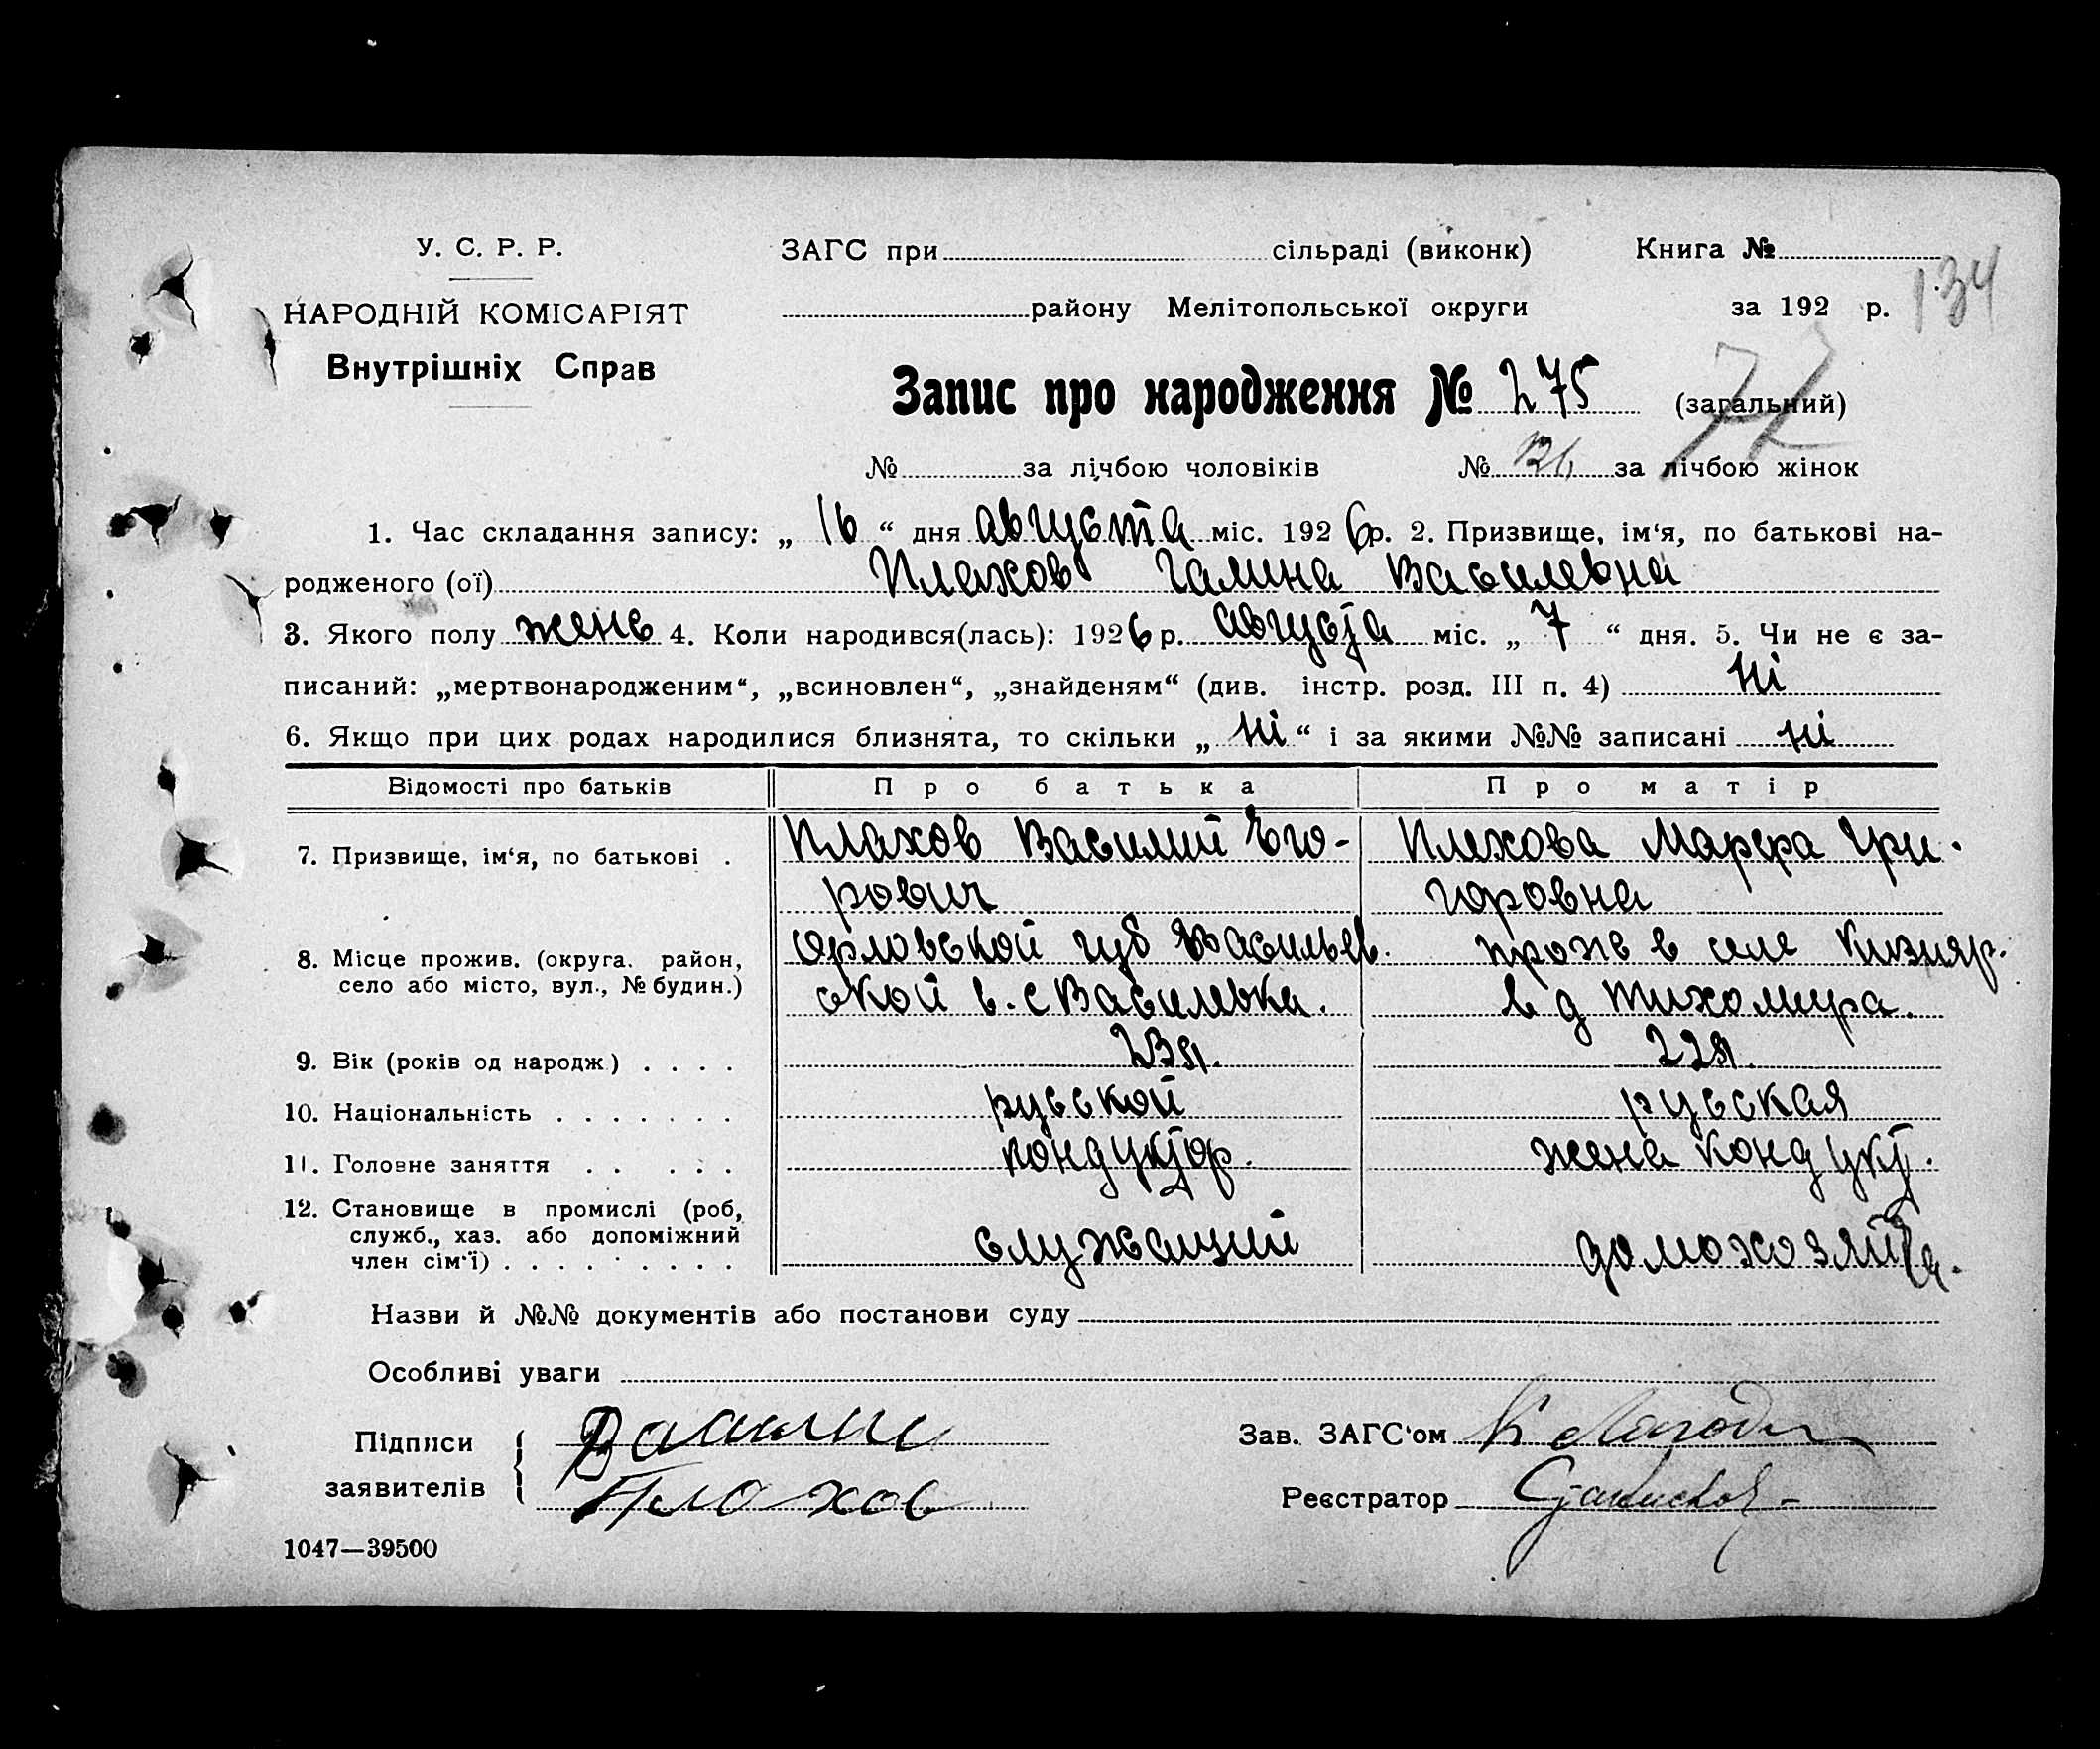 У. С. Р. Р.
НАРОДНІЙ КОМІСАРІЯТ
Внутрішніх Справ
ЗАГС при сільраді (виконк) Книга №
району Мелітопольської округи за 192 р.
134
Запис про народження № 275 (загальний)
77
№ за лічбою чоловіків № 131 за лічбою жінок
1. Час складання запису: „ 16 “ дня августа міс. 192 6 р. 2. Призвище, ім‘я, по батькові на-
родженого (ої) Плахов Галина Василевна
3. Якого полу женс 4. Коли народився(лась): 192 6 р. августа міс. „ 7 “ дня. 5. Чи не є за-
писаний: „мертвонародженим“, „всиновлен“, „знайденям“ (див. інстр. розд. III п. 4) ні
6. Якщо при цих родах народилися близнята, то скільки „ ні “ і за якими №№ записані ні
Відомості про батьків Про батька Про матір
7. Призвище, ім‘я, по батькові . Плахов Василий Его- Плахова Марфа Гри-
рович горовна
8. Місце прожив. (округа, район, Орловской губ Васильев. прож в селе Кизияр.
село або місто, вул., № будин.) ской в. с Василевка. в д Тихомира.
9. Вік (років од народж) . . . . 23 л. 22 л.
10. Національність . . . . . . . русской русская
11. Головне заняття . . . . . кондуктор. жена кондукт.
12. Становище в промислі (роб,
служб., хаз. або допоміжний служащий домохозяйка.
член сім‘ї) . . . . . . . . .
Назви й №№ документів або постанови суду
Особливі уваги
Підписи Василий Зав. ЗАГС‘ом
заявителів Плахов Реєстратор
1047—39500